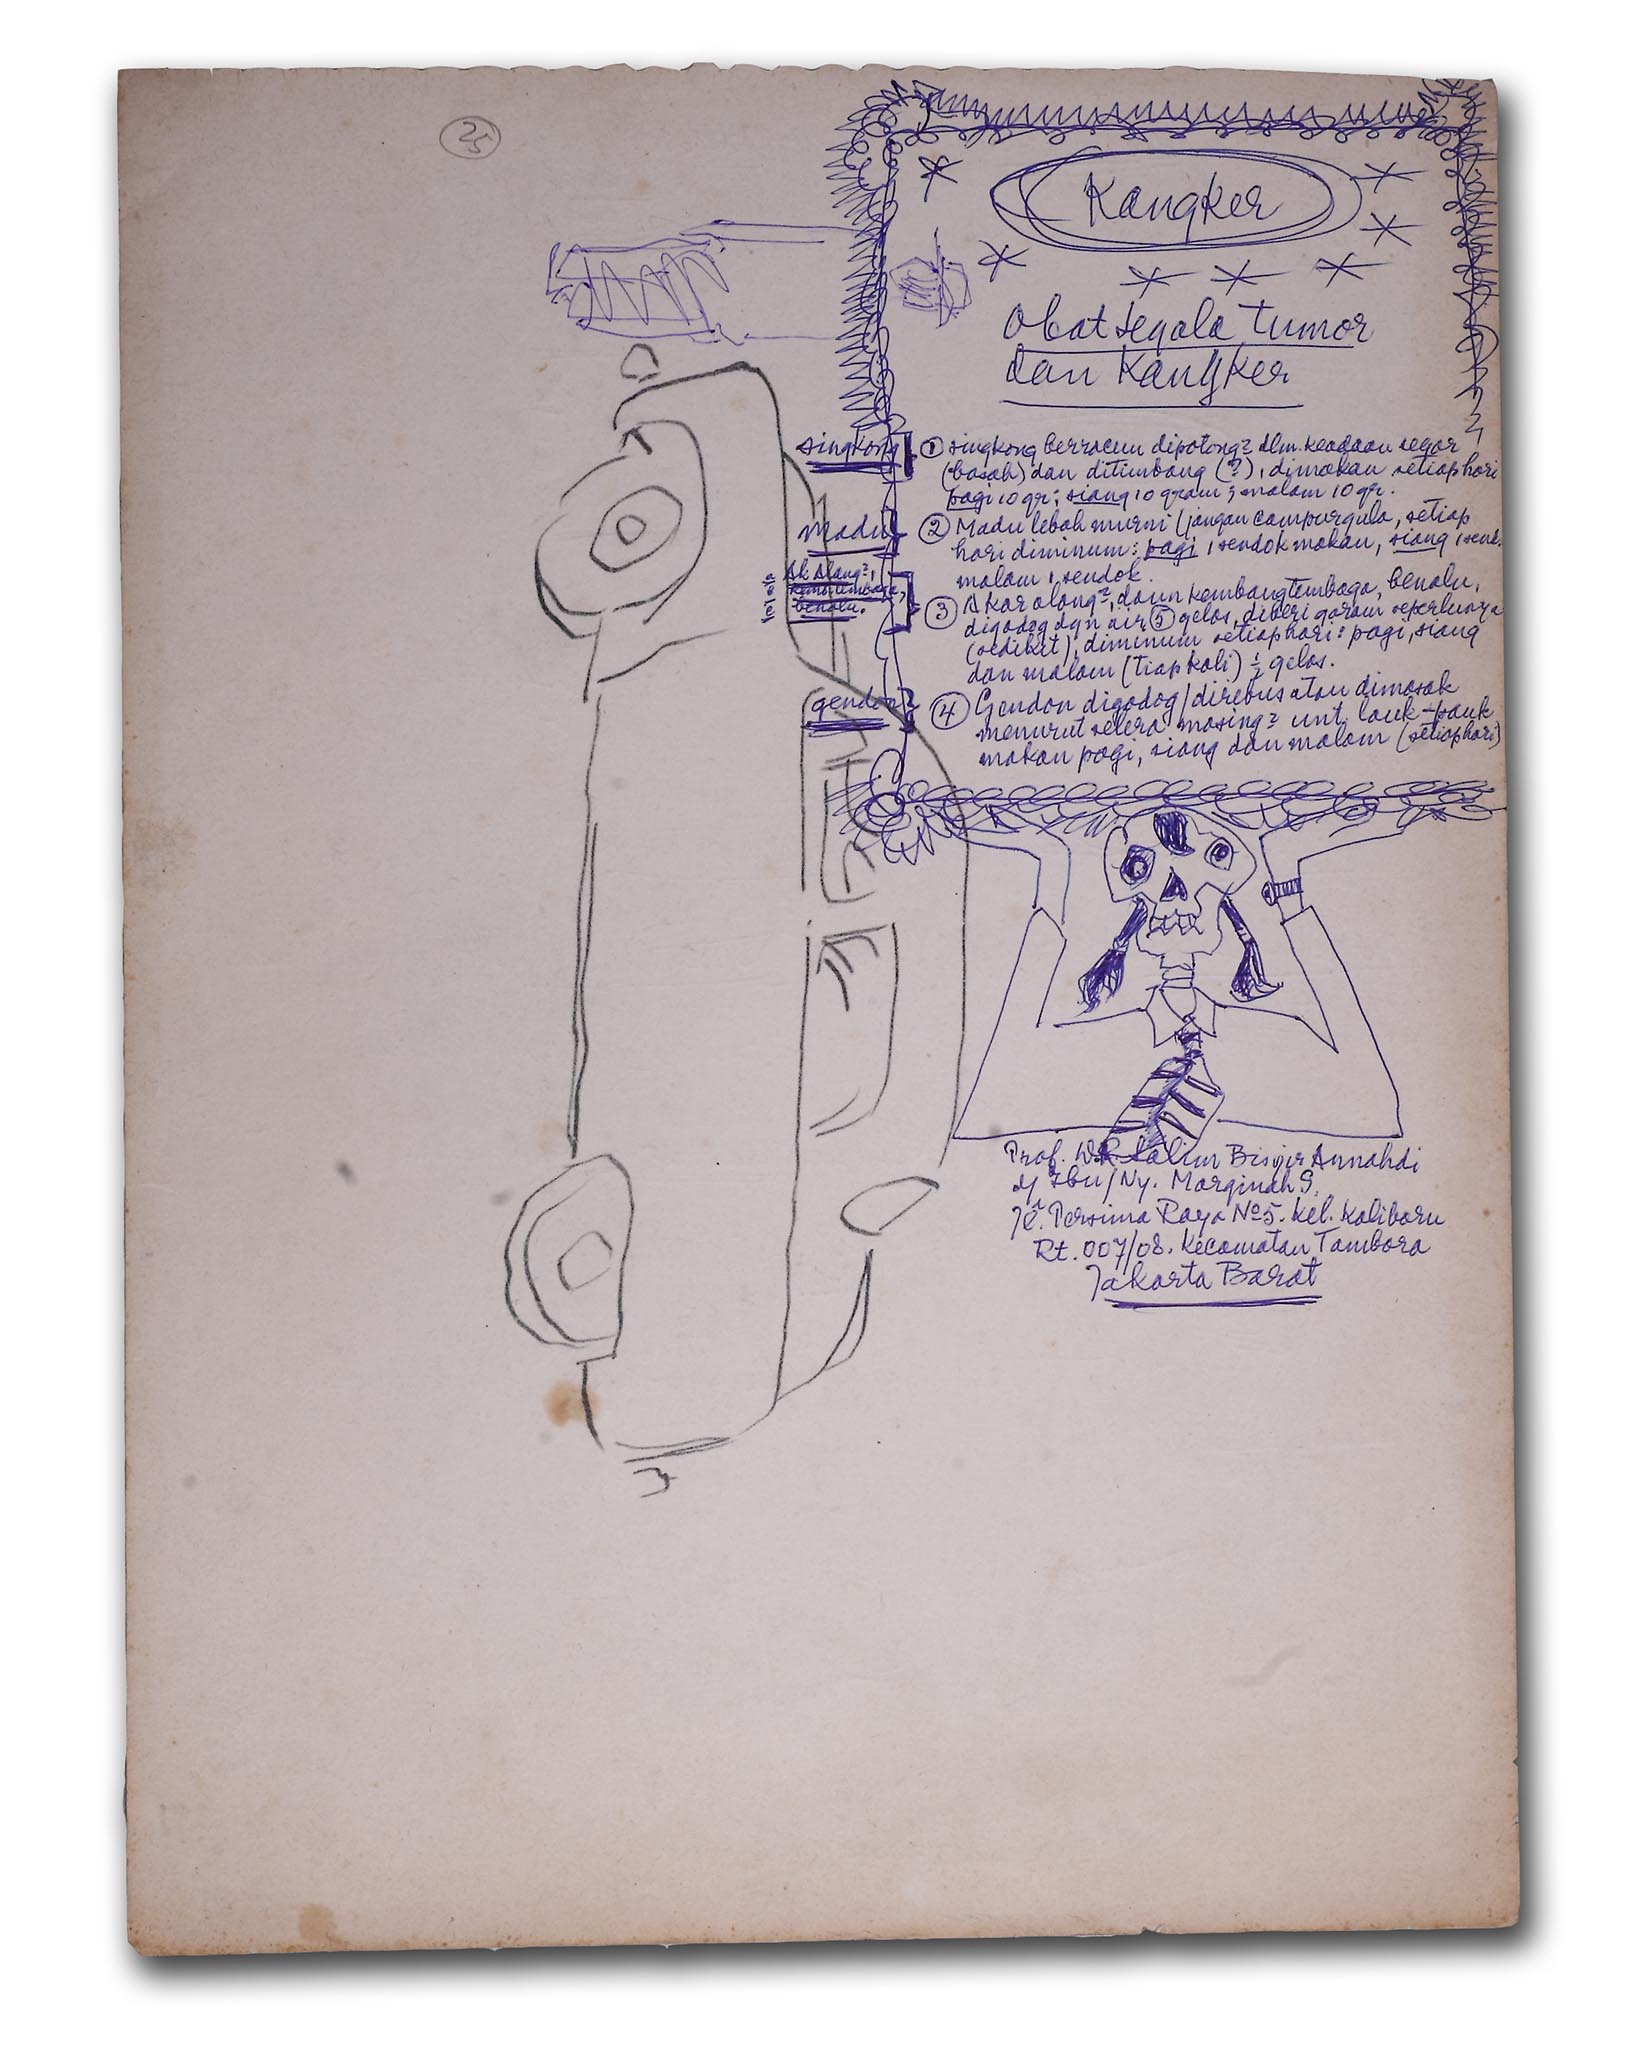 25
Kangker
Obat segala tumor
dan Kangker
singkong
① singkong berracun dipotong2 dlm. keadaan segar
(basah) dan ditimbang (?), dimakan setiap hari
pagi 10 gr; siang 10 gram; malam 10 gr.
madu
② Madu lebah murni (jangan campur gula, setiap
hari diminum: pagi 1 sendok makan, siang 1 send.
malam 1 sendok.
Ak. Alang2,
kemb. tembaga,
benalu.
③ Akar alang2, daun kembang tembaga, benalu,
digodog dgn air ⑤ gelas, diberi garam seperlunya
(sedikit), diminum setiap hari: pagi, siang
dan malam (tiap kali) ½ gelas.
gendon2
④ Gendon digodog/direbus atau dimasak
menurut selera masing2 unt. lauk-pauk
makan pagi, siang dan malam (setiap hari)
Prof. W.R. Salim Annahdi
Ibu/Ny. Marginah S.
Jl. Persima Raya No 5. Kel. Kalibaru
Rt. 007/08. Kecamatan Tambora
Jakarta Barat